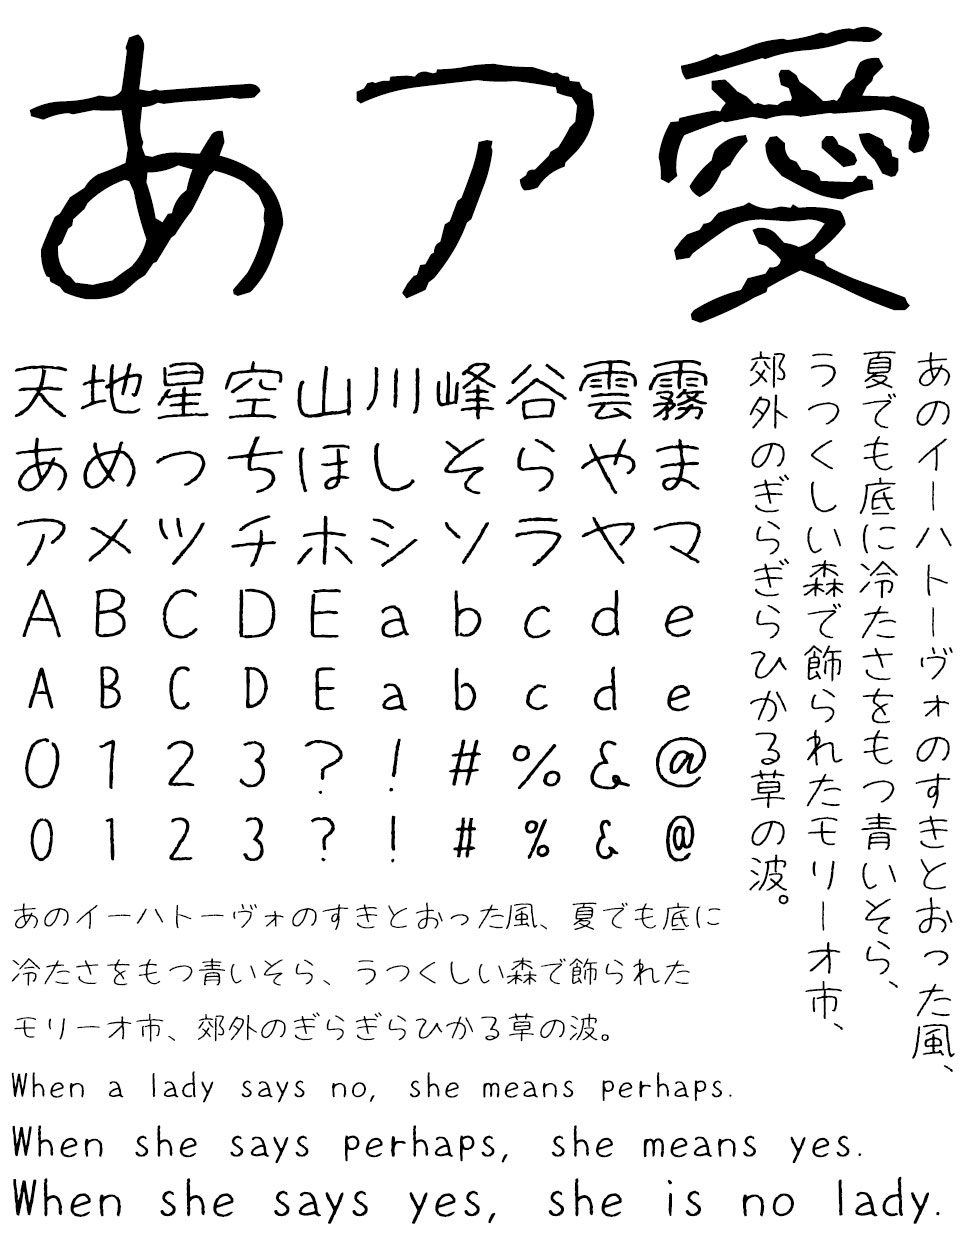 あア愛
天地星空山川峰谷雲霧
あめつちほしそらやま
アメツチホシソラヤマ
ABCDEabcde
ABCDEabcde
0123?!#%&@
0123?!#%&@
あのイーハトーヴォのすきとおった風、
夏でも底に冷たさをもつ青いそら、
うつくしい森で飾られたモリーオ市、
郊外のぎらぎらひかる草の波。
あのイーハトーヴォのすきとおった風、夏でも底に
冷たさをもつ青いそら、うつくしい森で飾られた
モリーオ市、郊外のぎらぎらひかる草の波。
When a lady says no, she means perhaps.
When she says perhaps, she means yes.
When she says yes, she is no lady.